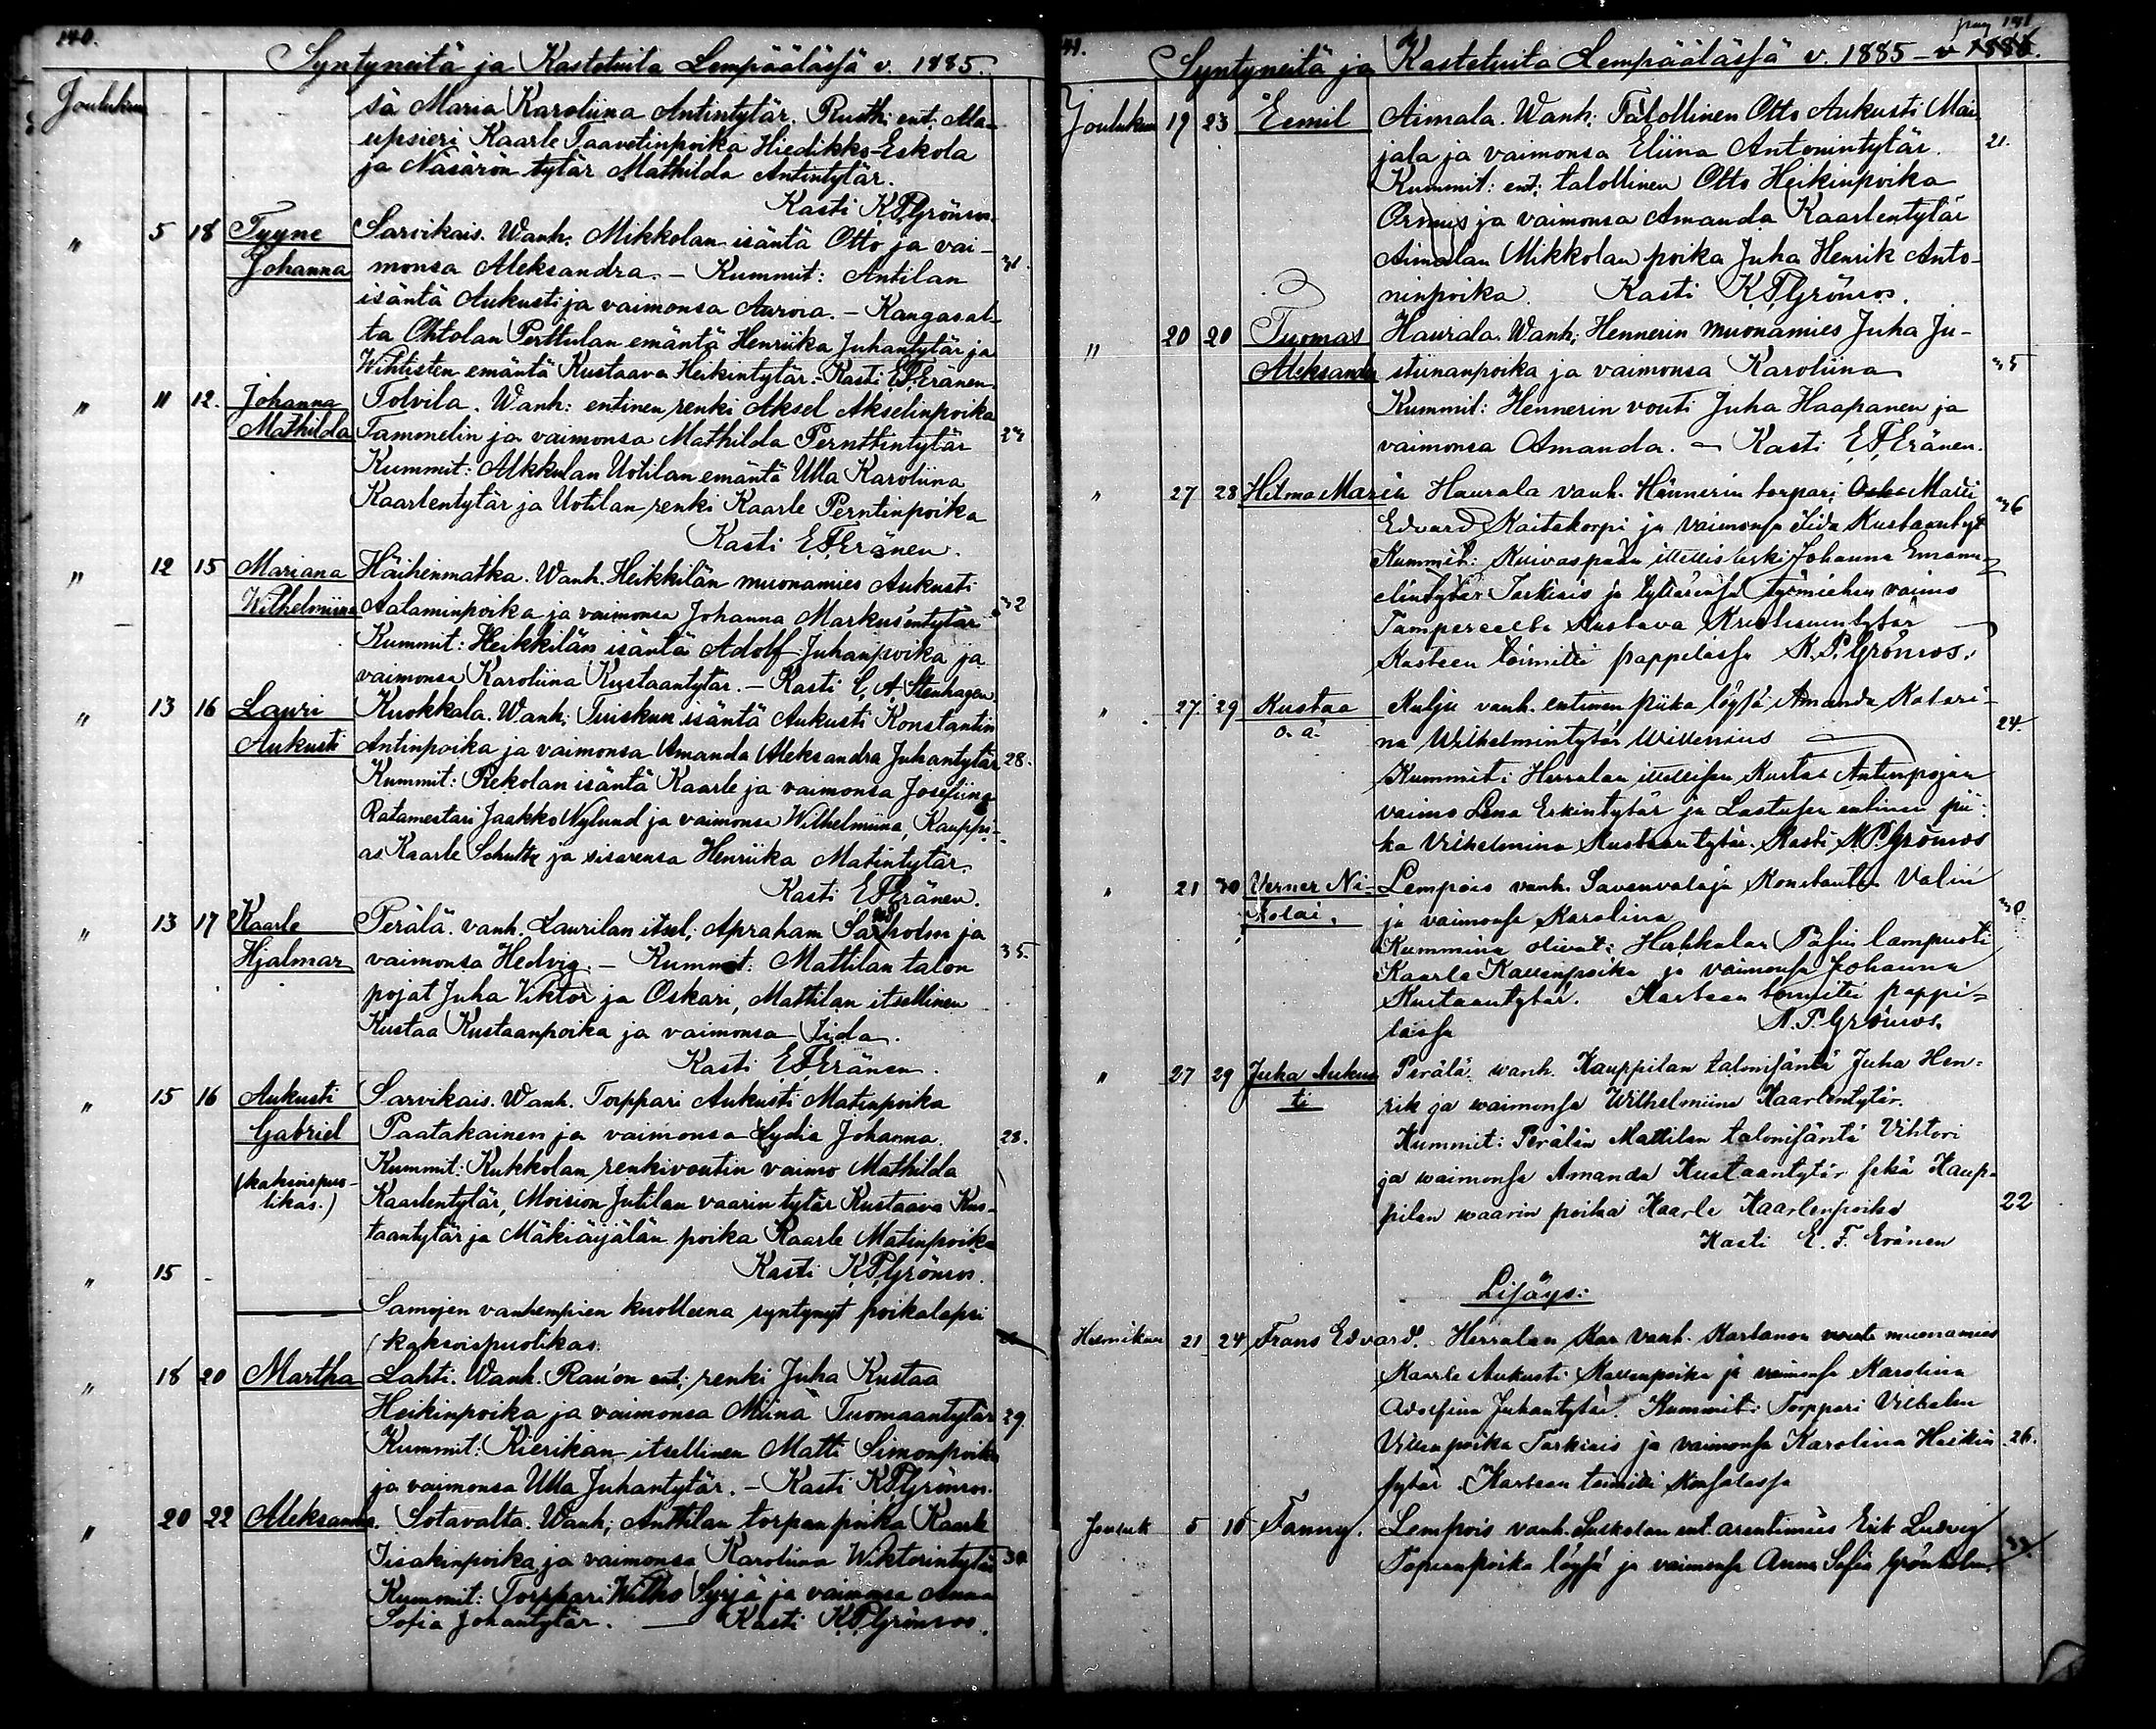 140.
Syntyneitä ja Kastetuita Lempäälässä v. 1885.
Joulukuu
sä Maria Karoliina Antintytär. Rusthi ent. Ala-
upsieri Kaarle Taavetinpoika Hiedikko-Eskola
ja Näsärön tytär Mathilda Antintytär.
Kasti K.P. Grönroos.
" 5 18 Tyyne Sarvikais. Wanh. Mikkolan isäntä Otto ja vai-
Johanna monsa Aleksandra. - Kummit: Antilan 31.
isäntä Aukusti ja vaimonsa Aurora. - Kangasal-
ta Ohtolan Perttulan emäntä Henriika Juhantytär ja
Wihtisten emäntä Kustaava Heikintytär. - Kasti E.F. Eränen.
" 11 12. Johanna Tolvila. Wanh: entinen renki Aksel Akselinpoika
Mathilda Tammelin ja vaimonsa Mathilda Pernttintytär 27
Kummit: Alkkulan Uotilan emäntä Ulla Karoliina
Kaarlentytär ja Uotilan renki Kaarle Perntinpoika
Kasti E.F. Eränen.
" 12 15 Mariana Häihenmatka. Wanh. Heikkilän muonamies Aukusti
Wilhelmiina Aalaminpoika ja vaimonsa Johanna Markus'entytär 32
Kummit: Heikkilän isäntä Adolf Juhanpoika ja
vaimonsa Karoliina Kustaantytär. - Kasti C. A. Stenhagen.
" 13 16 Lauri Kuokkala. Wanh: Tuiskun isäntä Aukusti Konstantin
Aukusti Antinpoika ja vaimonsa Amanda Aleksandra Juhantytär 28.
Kummit: Rekolan isäntä Kaarle ja vaimonsa Josefiina
Ratamestari Jaakko Nylund ja vaimonsa Wilhelmiina, Kauppi-
as Kaarle Schulte ja sisarensa Henriika Matintytär.
Kasti E.F. Eränen.
" 13 17 Kaarle Perälä. vanh. Laurilan itsel; Apraham holm ja
Hjalmar vaimonsa Hedvig. - Kummit: Mattilan talon 35.
pojat Juha Viktor ja Oskari, Mattilan itsellinen
Kustaa Kustaanpoika ja vaimonsa Iida.
Kasti E.F. Eränen.
" 15 16 Aukusti Sarvikais. Wanh. Torppari Aukusti Matinpoika
Gabriel Paatakainen ja vaimonsa Lydia Johanna. 28.
(kaksoispuo- Kummit: Kukkolan renkivoutin vaimo Mathilda
likas.) Kaarlentytär, Moision Jutilan vaarin tytär Kustaava Kus-
taantytär ja Mäkiäijälän poika Kaarle Matinpoika
Kasti K.P. Grönroos.
" 15 -
Samojen vanhempien kuolleena syntynyt poikalapsi
(kaksoispuolikas.
" 18 20 Martha Lahti. Wanh. Rau'on ent; renki Juha Kustaa
Heikinpoika ja vaimonsa Miina Tuomaantytär 29.
Kummit: Kierikan itsellinen Matti Simonpoika
ja vaimonsa Ulla Juhantytär. - Kasti K.P. Grönroos.
" 20 22 Aleksandra. Sotavalta. Wanh; Anttilan torpan poika Kaarle
Iisakinpoika ja vaimonsa Karoliina Wiktorintytär 30.
Kummit: Torppari Wilho Syrjä ja vaimonsa Anna
Sofia Johantytär. — Kasti K.P. Grönroos.
41. pag 141
Syntyneitä ja Kastetuita Lempäälässä v. 1885 - v 1886.
Joulukuu 19 23 Eemil Aimala. Wanh; Talollinen Otto Aukusti Mai-
jala ja vaimonsa Eliina Antonintytär. 21.
Kummit: ent; talollinen Otto Heikinpoika
ja vaimonsa Amanda Kaarlentytär
Aimalan Mikkolan poika Juha Henrik Anto-
ninpoika. Kasti K.P. Grönroos.
" 20 20 Tuomas Haurala. Wanh; Hennerin muonamies Juha Ju-
Aleksander stiinanpoika ja vaimonsa Karoliina 35
Kummit: Hennerin vouti Juha Haapanen ja
vaimonsa Amanda. - Kasti E.F. Eränen.
" 27 28 Hilma Maria Haurala vanh. Hännerin torpari Matti 36
Edvard Kaitakorpi ja vaimonsa Iida Kustaantyt
Kummit: Kuivaspään leski Johanna Emanu-
elintytär Tarkiais ja tyttärensä työmiehen vaimo
Tampereelta Kustava
Kasteen toimitti pappilassa K.P. Grönroos.
" 27 29 Kustaa Kulju vanh. entinen piika löysä Amanda Katari-
o. ä. na Wilhelmintytär Willenius 24.
Kummit: Herralan Kustaa Antinpojan
vaimo Lena Erkintytär ja entinen pii-
ka Vilhelmina Kustaantytär. Kasti K.P. Grönroos
" 21 30 Verner Ni- Lempois vanh. Savenvalaja Konstantin Valin
kolai. ja vaimonsa Karolina 30.
Kummina olivat: Hahkalan lampuoti
Kaarle Kallenpoika ja vaimonsa Johanna
Kustaantytär. Kasteen toimitti pappi-
lassa K.P. Grönroos.
" 27 29 Juha Aukus Perälä. wanh. Kauppilan talonisäntä Juha Hen-
ti rik ja waimonsa Wilhelmiina Kaarlentytär.
Kummit: Perälän Mattilan talonisäntä Vihtori
ja waimonsa Amanda Kustaantytär sekä Kaup-
pilan waarin poika Kaarle Kaarlenpoika 22
Kasti E. F. Eränen
Lisäys:
Heinäkuu 21 24 Frans Edvard. Herralan vanh. Kartanon muonamies
Kaarle Aukusti Kallenpoika ja vaimonsa Karolina
Adolfina Juhantytär. Kummit: Torppari Vilhelm
Villenpoika Tarkiais ja vaimonsa Karolina Heikin 26.
tytär. Kasteen toimitti
Jouluk 5 16 Fanny. Lempois vanh. Suskolan ent. arentimies Erik Ludvig
löysä ja vaimonsa Anna Sofia Grönholm 33.